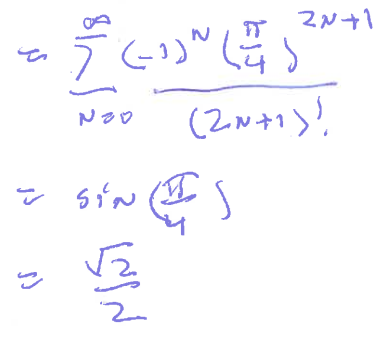 = ∑_{n=0}^{∞} (-1)^n (π/4)^{2n+1} / (2n+1)!
= sin(π/4)
= √2/2